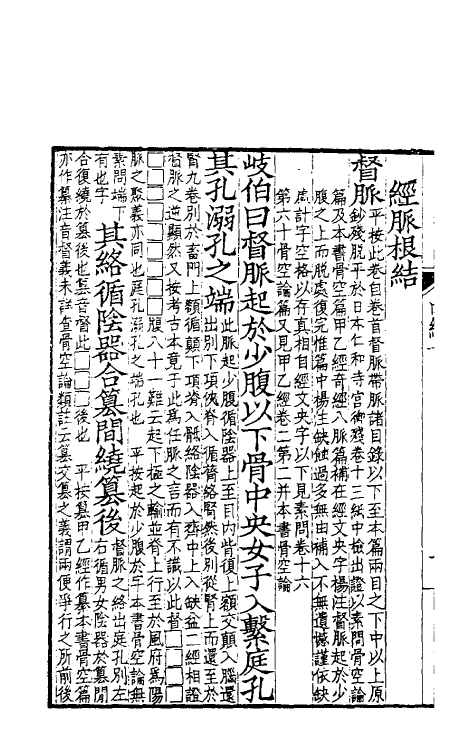 經脈根結
督脈平按此卷自卷首督脈帶脈諸目錄以下至本篇兩目之下中以上原
鈔殘脫平於日本仁和寺宮御殘卷十三紙中檢出證以素問骨空論
篇及本書骨空篇甲乙經奇經八脈篇補在經文央字楊注督脈起於少
腹之上而脫處復完惟篇中楊注缺蝕過多無由補入不無遺憾謹依缺
處計字空格以存真相自經文央字以下見素問卷十六
第六十骨空論篇又見甲乙經卷二第二并本書骨空論
岐伯曰督脈起於少腹以下骨中央女子入繫庭孔
其孔溺孔之端此脈起少腹循陰器上至目內眥復上額交顛入腦還
出別下項俠脊入循膂絡腎然後別從腎上而還至於
腎九卷別於畜門上額循顛下項脊入骶絡陰器入齊中上入缺盆二經相證
督脈之道顯然又按考古本竟于此爲任脈之言而有不識以此督□□□
□□□□□□腹八十一難云起下極之輸並脊上行至於風府爲陽
脈之聚義亦同也庭孔溺孔之端孔也　平按起於少腹於字本書骨空論無
素問端下
有也字
其絡循陰器合篡間繞篡後督脈之絡出庭孔別左
右循男女陰器於篡間
合復繞於篡後也篡音督此□□□後也　平按篡甲乙經作纂本書骨空篇
亦作纂注音督義未詳查骨空論類註云篡交篡之義謂兩便爭行之所前後